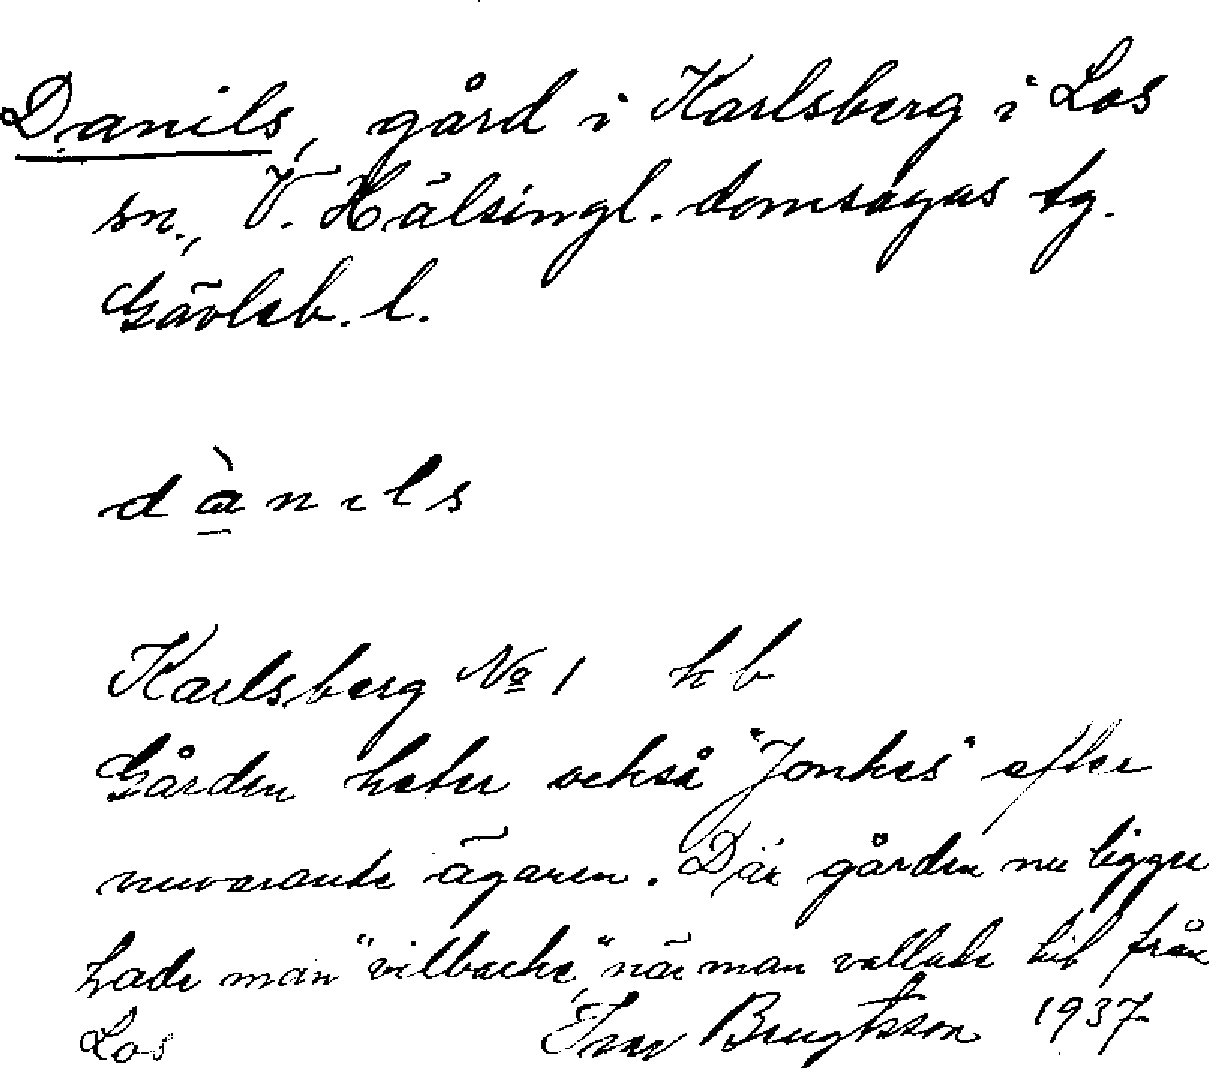 Danils, gård i Karlsberg i Los
sn., V. Hälsingl. domsagas tg.
Gävleb. l.
dà̱nıls
Karlsberg No 1 hb
Gården heter också "Jonkes" efter
nuvarande ägaren. Där gården nu ligger
hade man "vilbacke", när man vallade hit från
Los Bengtsson 1937